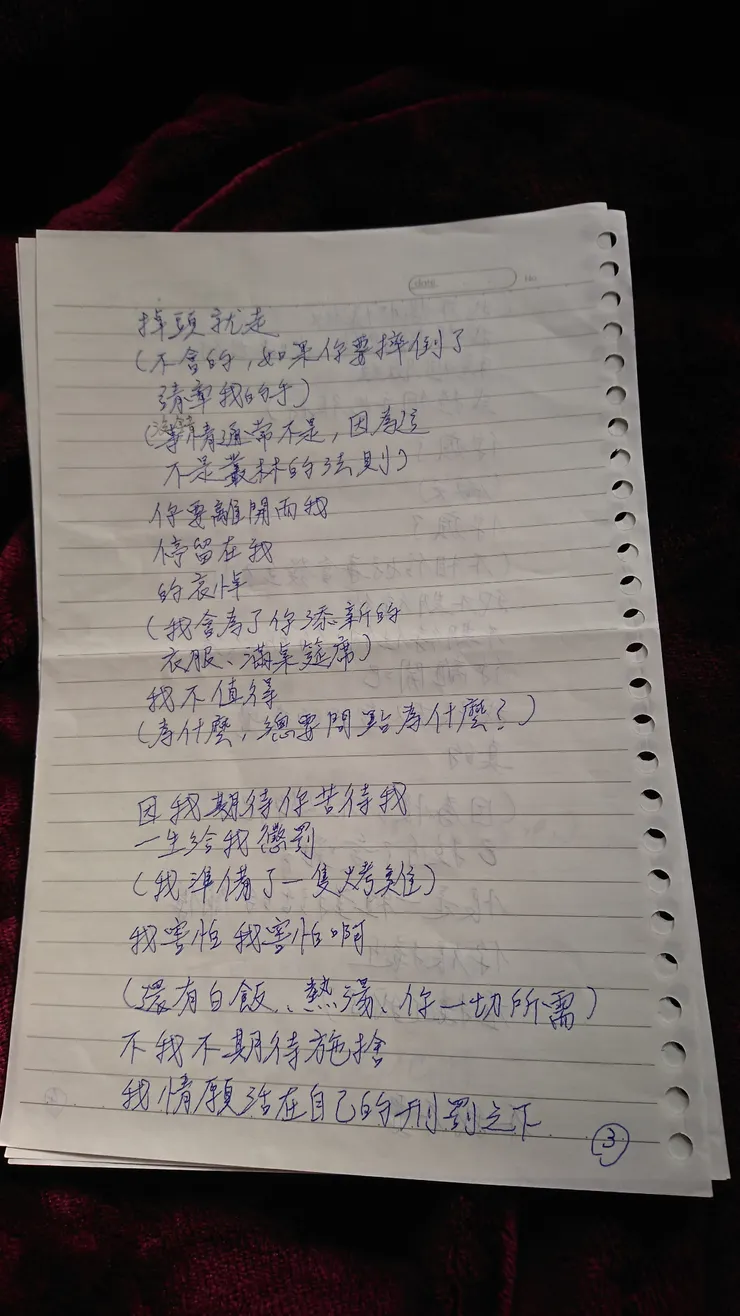 掉頭就走
(不會的,如果你要摔倒了
請牽我的手)
(事情通常不是,因為這
不是叢林的法則)
你要離開而我
停留在我
的哀悼
(我會為了你添新的
衣服、滿桌筵席)
我不值得
(為什麼,總要問點為什麼?)
因我期待你苦待我
一生給我懲罰
(我準備了一隻烤雞)
我害怕 我害怕啊
(還有白飯、熱湯、你一切所需)
不我不期待施捨
我情願活在自己的刑罰之下
3